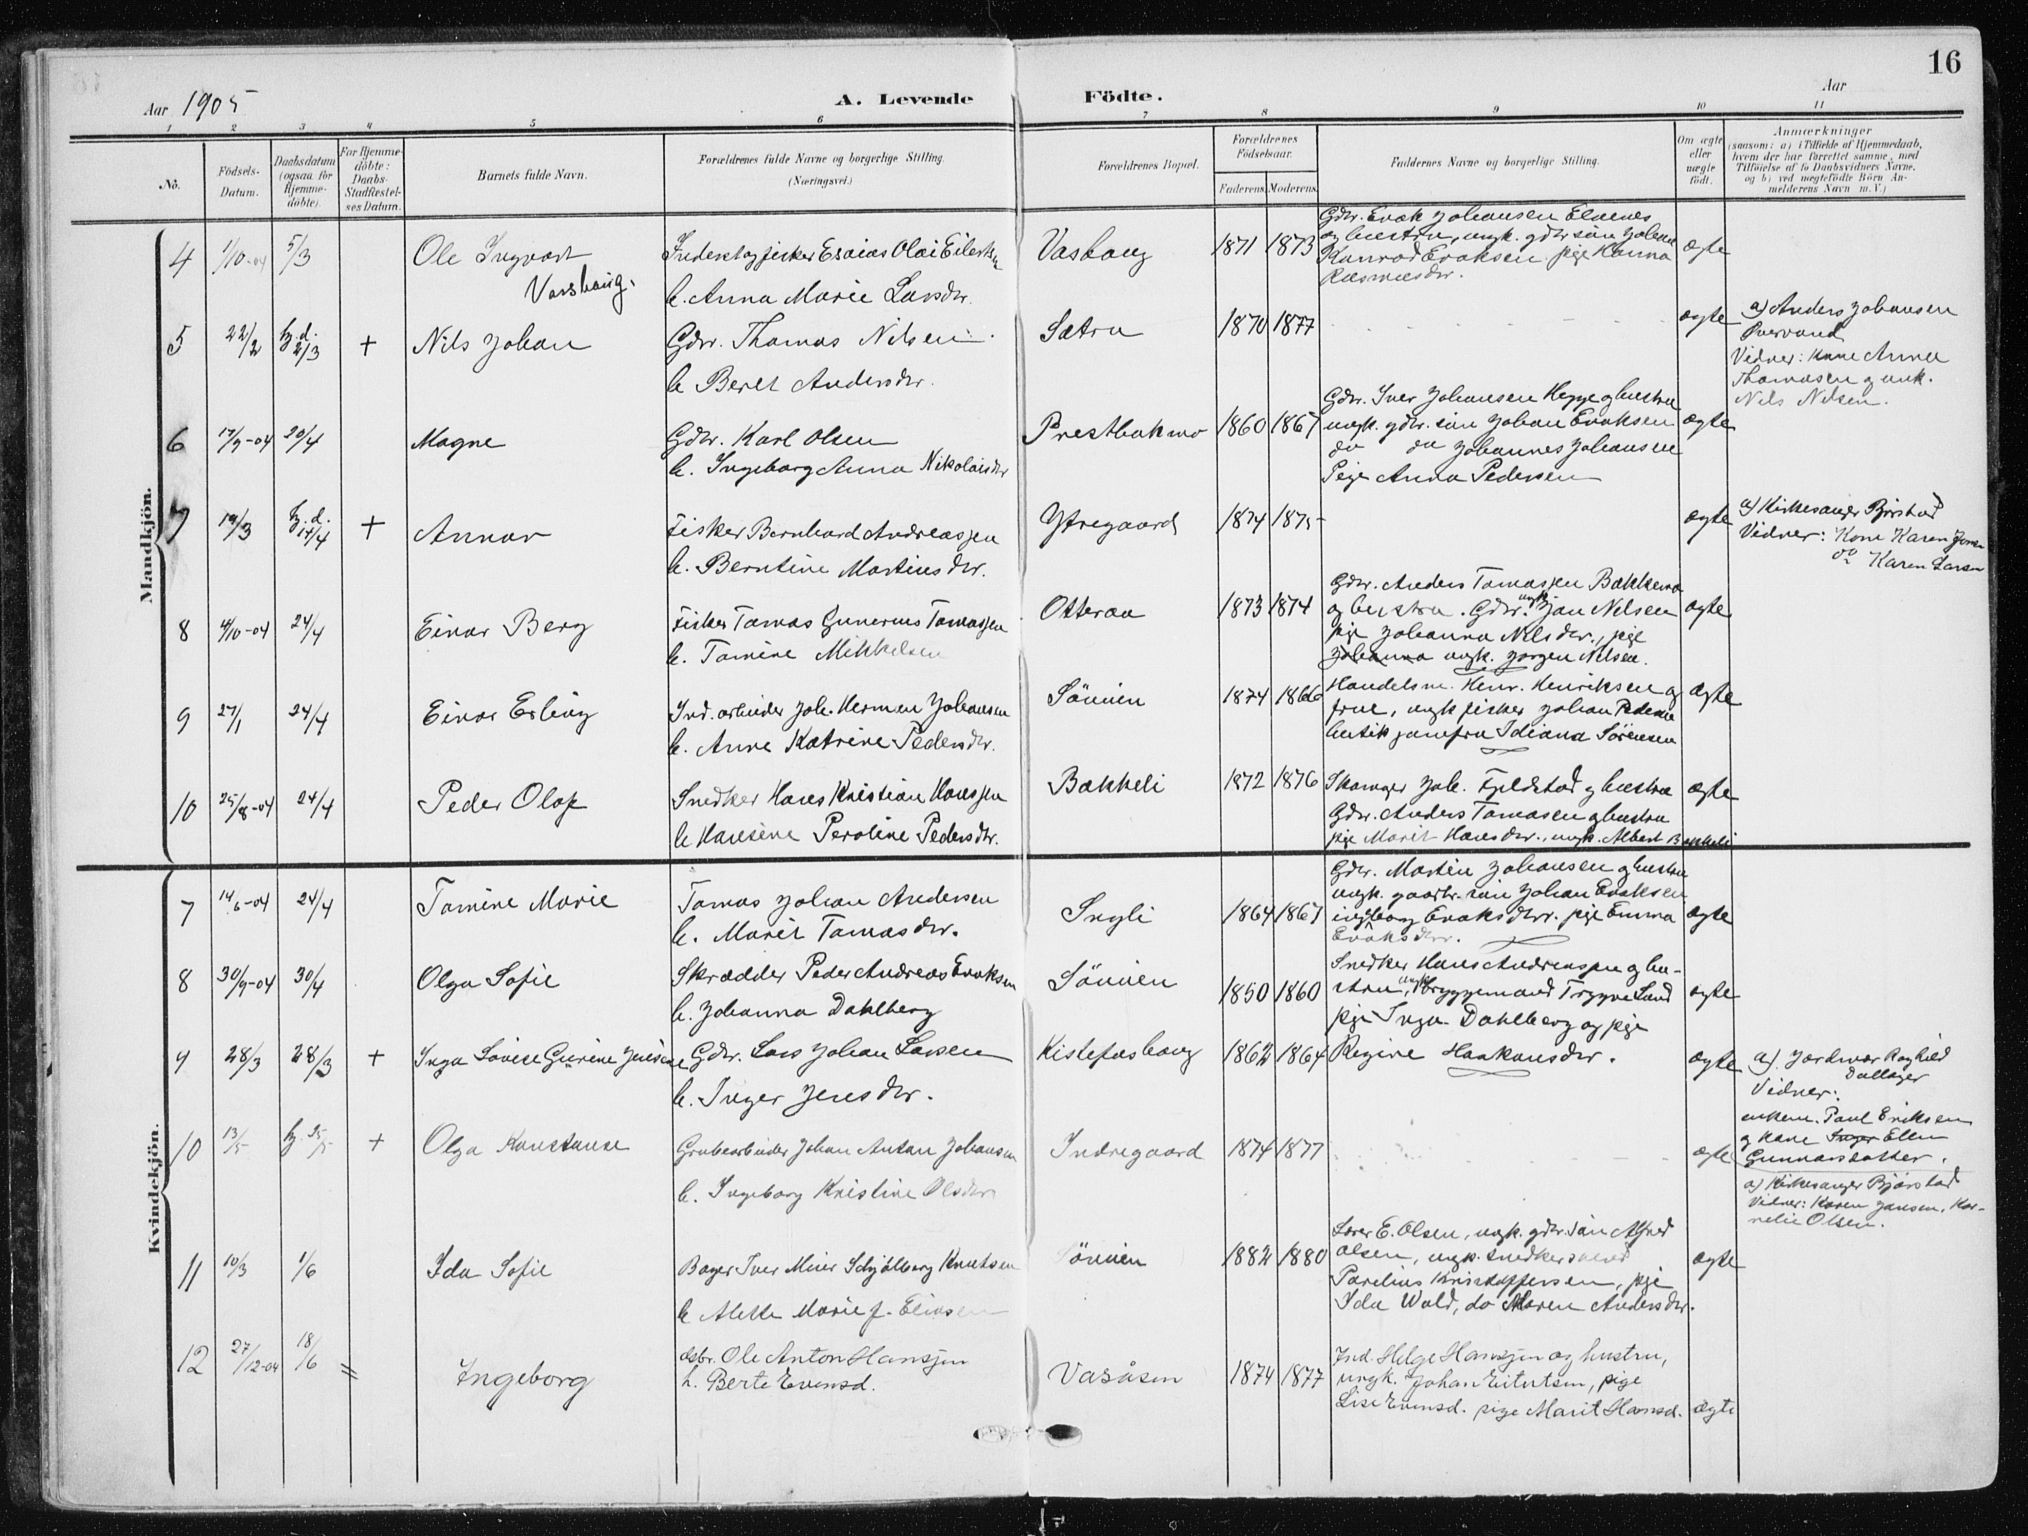 16
Aar 1905
A. Levende Födte.
Aar
1 2 3 4 5 6 7 8 9 10 11
No.
Födsels-Datum.
Daabsdatum (ogsaa for Hjemme-döbte).
For Hjemme-döbte: Daabs-Stadfæstel-ses Datum.
Barnets fulde Navn.
Forældrenes fulde Navne og borgerlige Stilling. (Næringsvei.)
Forældrenes Bopæl.
Forældrenes Födselsaar.
Faderens. Moderens.
Faddernes Navne og borgerlige Stilling.
Om ægte eller uægte födt.
Anmærkninger
(saasom: a) i Tilfælde af Hjemmedaab,
hvem der har forrettet samme, med
Tilföielse af to Daabsvidners Navne.
og b) ved uægtefödte Börn An-
melderens Navn m. V.)
Mandkjön.
4 1/10-04 5/3 Ole Ingvart Vasshaug.
Inderst og fisker Esaias Olai Eilertsen
h. Anna Marie Larsdtr.
Vashaug 1871 1873
Gdbr. Evak Johansen Elvenes
og hustru, ungk. gdbr søn Johan
Konrad Evaksen pige Hanna
Rasmusdtr.
ægte
5 22/2 hj.d. 2/3 + Nils Johan
Gdbr. Thomas Nilsen
h. Beret Andersdtr.
Sætra 1870 1877
ægte
a) Anders Johansen
Övervand
Vidner: Kone Anna
Thomasen og unk.
Nils Nilsen.
6 17/9-04 20/4 Magne
Gdbr. Karl Olsen
h. Ingeborg Anna Nikolaisdtr
Prestbakmo 1860 1867
Gdbr. Iver Johansen Hegge og hustru
ungk. gdbr. søn Johan Evaksen
do do Johannes Johansen
Pige Anna Pedersen
ægte
7 19/3 hj.d. 14/4 + Annar
Fisker Bernhard Andreassen
h. Berntine Martinsdtr.
Ytregaard 1874 1875
ægte
a) Kirkesanger Bjørstad
Vidner: Kone Karen Jensen
do Karen Larsen
8 4/10-04 24/4 Einar Berg
Fisker Tomas Gunerius Tomassen
h. Tomine Mikkelsen
Otteraa 1873 1874
Gdbr. Anders Tomassen Bakkemo
og hustru. Gdbr. ungk Jon Nilsen
pige Johanna Nilsdtr., pige
Johanna ungk. Jorgen Nilsen.
ægte
9 27/1 24/4 Einar Erling
Ind. arbeider Joh. Herman Johansen
h. Anne Katrine Pedersdtr.
Sövien 1874 1866
Handelsm. Henr. Henriksen og
frue, ungk fisker Johan Pedersen
butikjomfru Idiana Sörensen
ægte
10 25/8-04 24/4 Peder Olaf
Snedker Hans Kristian Hanssen
h Hansine Peroline Pedersdtr.
Bakkeli 1872 1876
Skomager Joh. Fjeldstad og hustru
Gdbr. Anders Tomasen og hustru
pige Marit Hansdtr., ungk. Albert Bakkeli
ægte
Kvindekjön.
7 14/6-04 24/4 Tomine Marie
Tomas Johan Andersen
h. Marit Tomasdtr.
Ingli 1864 1867
Gdbr. Martin Johansen og hustru
ungk. gaardbr. søn Johan Evaksen
ingeborg Evaksdtr. pige Emma
Evaksdtr.
ægte
8 30/9-04 30/4 Olga Sofie
Skrædder Peder Andreas Evaksen
h. Johanna Dahlberg
Sövien 1850 1860
Snedker Hans Andreassen og hu-
stru, ungk bryggemand Trygve Sand
pige Inga Dahlberg og pige
Regine Haakonsdtr.
ægte
9 28/3 28/3 + Inga Lovise Gurine Jensine
Gdbr. Lars Johan Larsen
h. Inger Jensdtr.
Kistefoshaug 1862 1864
ægte
a) Jordmor Raghild
Dallager
Vidner:
enkem. Paul Eriksen
og kone Inger Ellen
Gunnarsdatter.
10 13/5 hj. 25/5 + Olga Konstanse
Grubearbeider Johan Anton Johansen
h. Ingeborg Kristine Olsdtr
Indregaard 1874 1877
ægte
a) Kirkesanger Bjørstad
Vidner: Karen Jensen, Kor-
nelie Olsen.
11 10/3 1/6 Ida Sofie
Bager Iver Meier Schjölberg Knutsen
h. Alette Marie f. Eliasen
Sövien 1882 1880
Lærer E. Olsen, ungk. gdbr. søn Alfred
Olsen, ungk. snedkersvend
Parelius Kristoffersen, pige
Ida Wold, do Maren Andersdtr.
ægte
12 27/12-04 18/6 Ingeborg
Gsbr. Ole Anton Hanssen
h. Berte Evensd.
Vasåsen 1874 1877
Ind. Helge Hanssen og hustru,
ungk. Johan Eilertsen, pige
Lise Evensd. pige Marit Hansd.
ægte